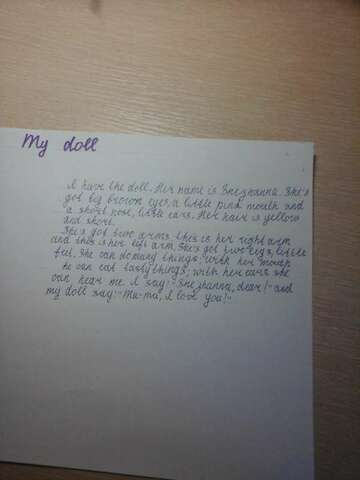 My doll
I have the doll. Her name is Snezhanna. She's
got big brown eyes, a little pink mouth and
a short nose, little ears. Her hair is yellow
and short.
She's got two arms this is her right arm
and this is her left arm. She's got two legs, little
feet. She can do many things; with her mouth
he can eat tasty things; with her ears she
can hear me. I say: "Snezhanna, dear!" and
my doll say: "Ma-ma, I love you!"